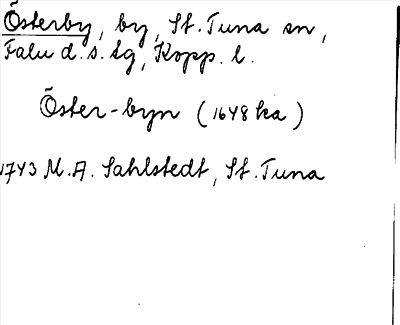 Österby, by, St. Tuna sn,
Falu d. s. tg, Kopp. l.
Öster-byn (1648 ka)
1743 M. A. Sahlstedt, St. Tuna